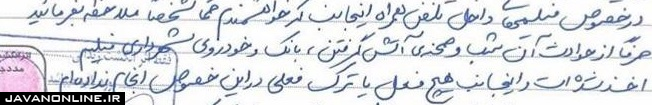 در خصوص فیلمهای داخل تلفن همراه اینجانب که خواهشمندم شما شخصا ملاحظه بفرمائید
صرفا از حوادث آن شب و صحنه ی آتش گرفتن، بانک و خودروی شهرداری فیلم
اخذ شده است و اینجانب هیچ فعل یا ترک فعلی در این خصوص انجام نداده ام
JAVANONLINE.IR
JAVANONLINE.IR